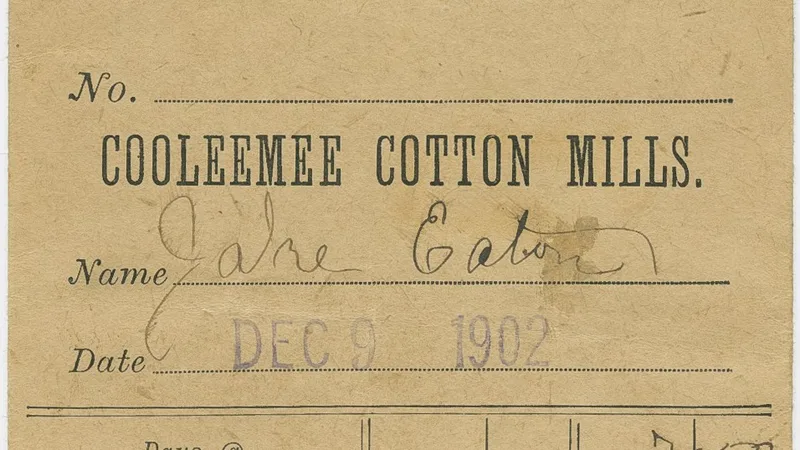 No.
COOLEEMEE COTTON MILLS.
Name Jake Eaton
Date DEC 9 1902
Days @